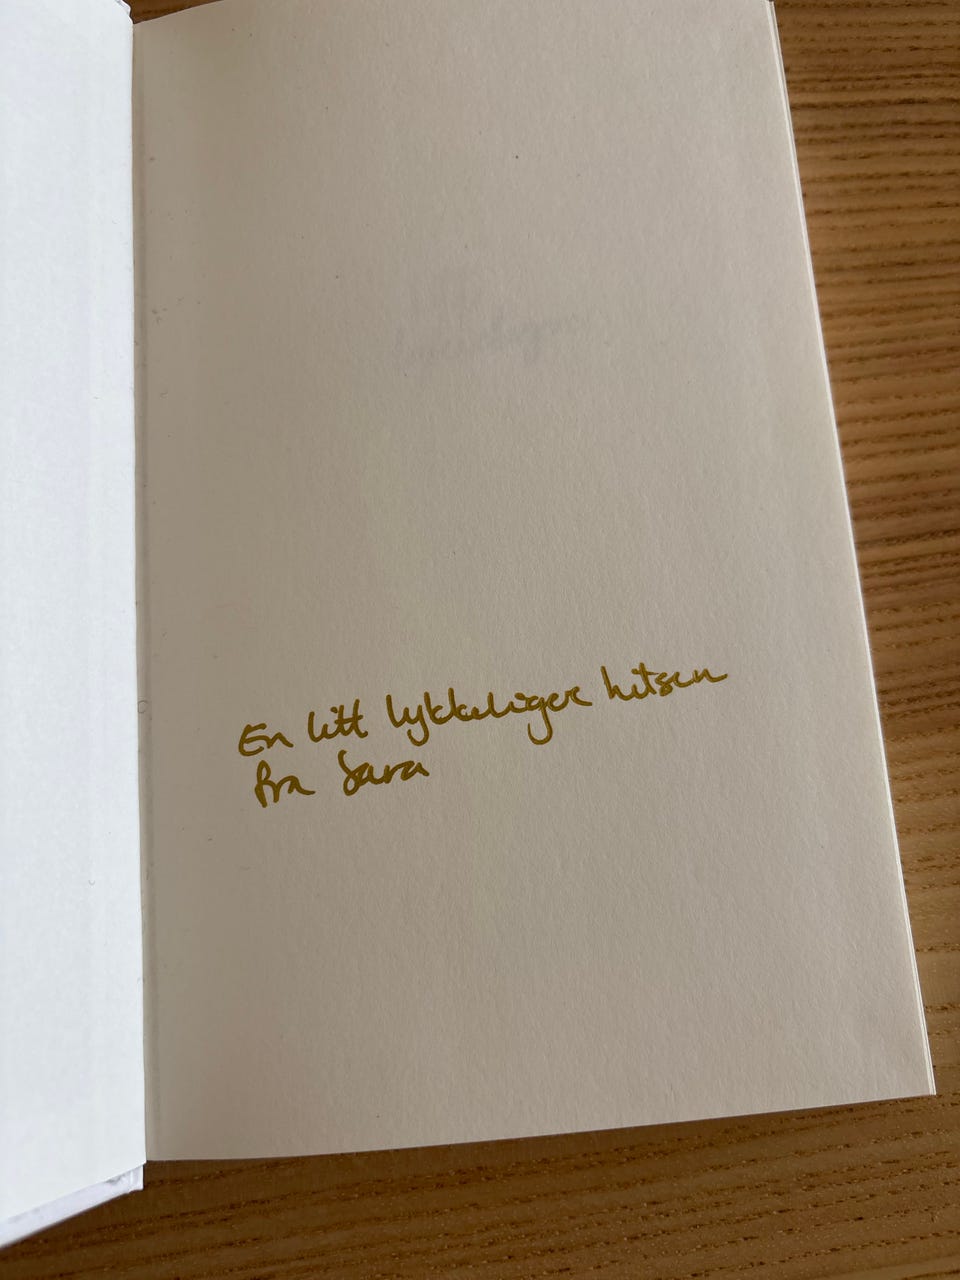 En litt lykkeligere hilsen
fra Sara